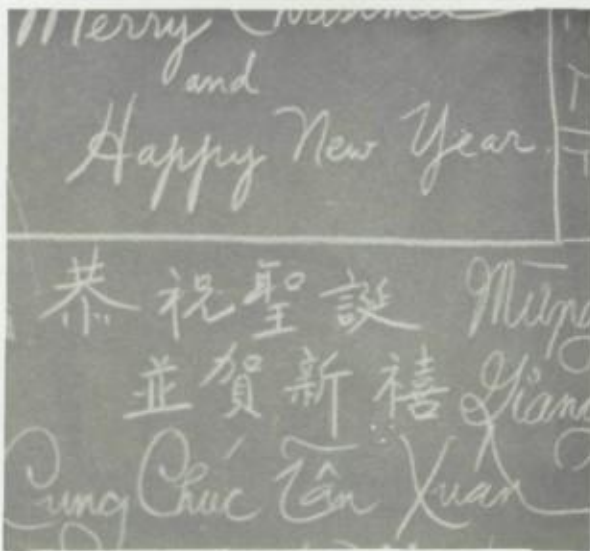 Merry Christmas
and
Happy New Year
恭祝聖誕 Mừng
並賀新禧 Giáng
Cung Chúc Tân Xuân